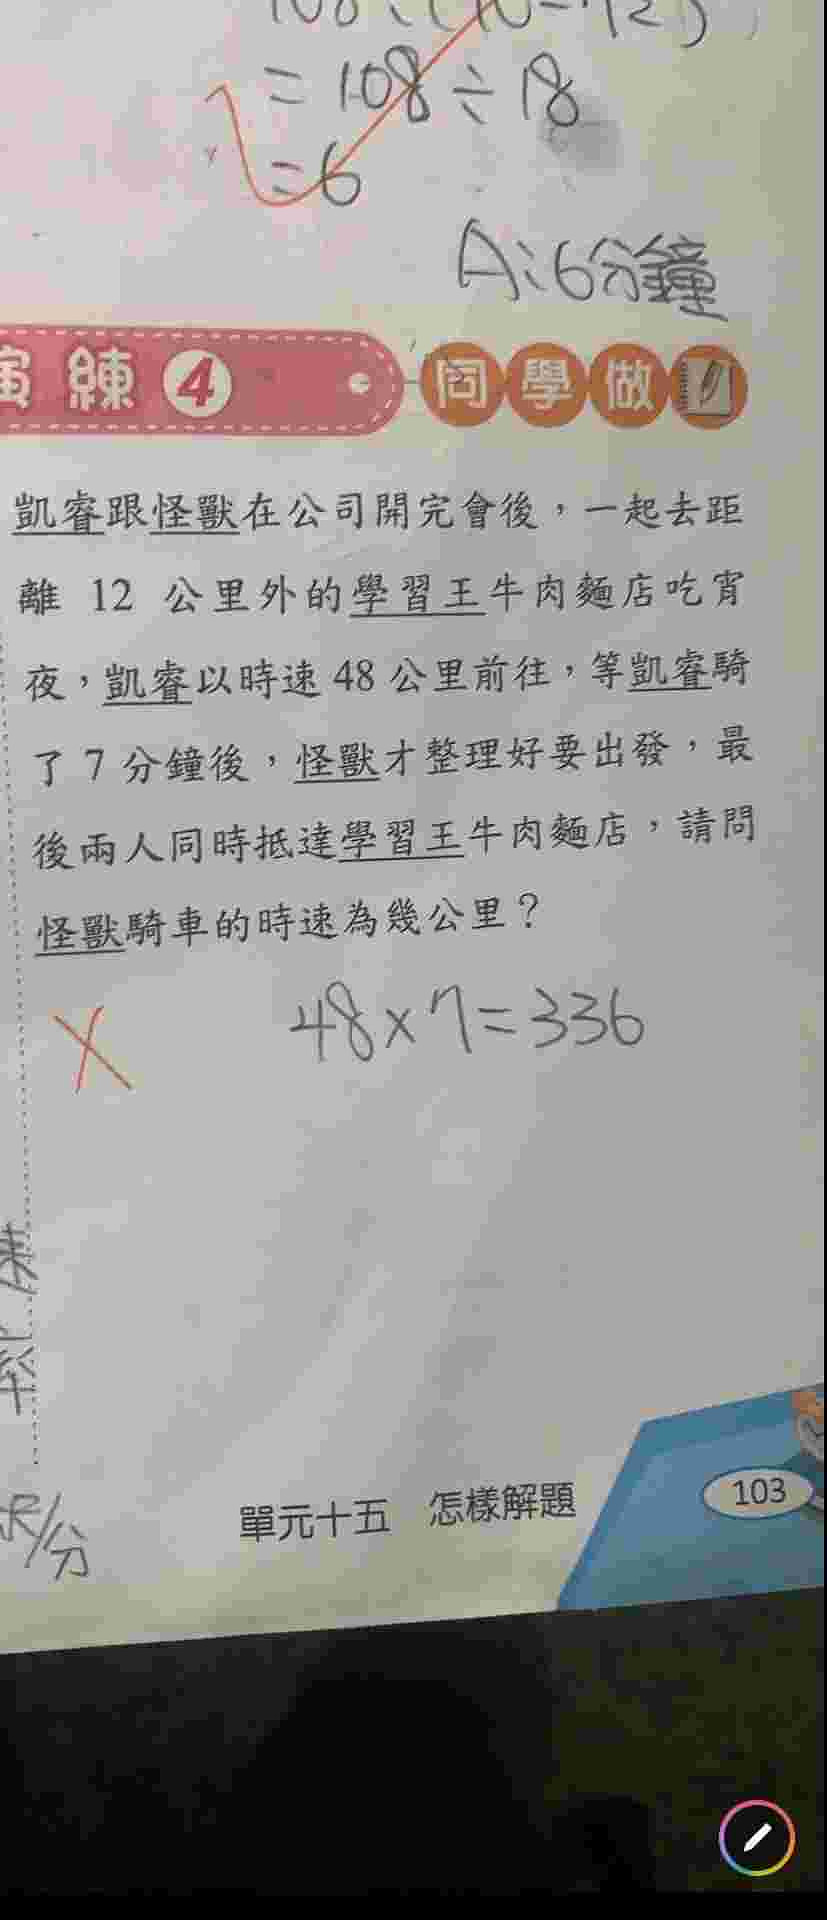 = 108 ÷ 18
= 6
A:6分鐘
演練 4 同學做
凱睿跟怪獸在公司開完會後，一起去距
離 12 公里外的學習王牛肉麵店吃宵
夜，凱睿以時速 48 公里前往，等凱睿騎
了 7 分鐘後，怪獸才整理好要出發，最
後兩人同時抵達學習王牛肉麵店，請問
怪獸騎車的時速為幾公里？
48×7=336
單元十五 怎樣解題 103